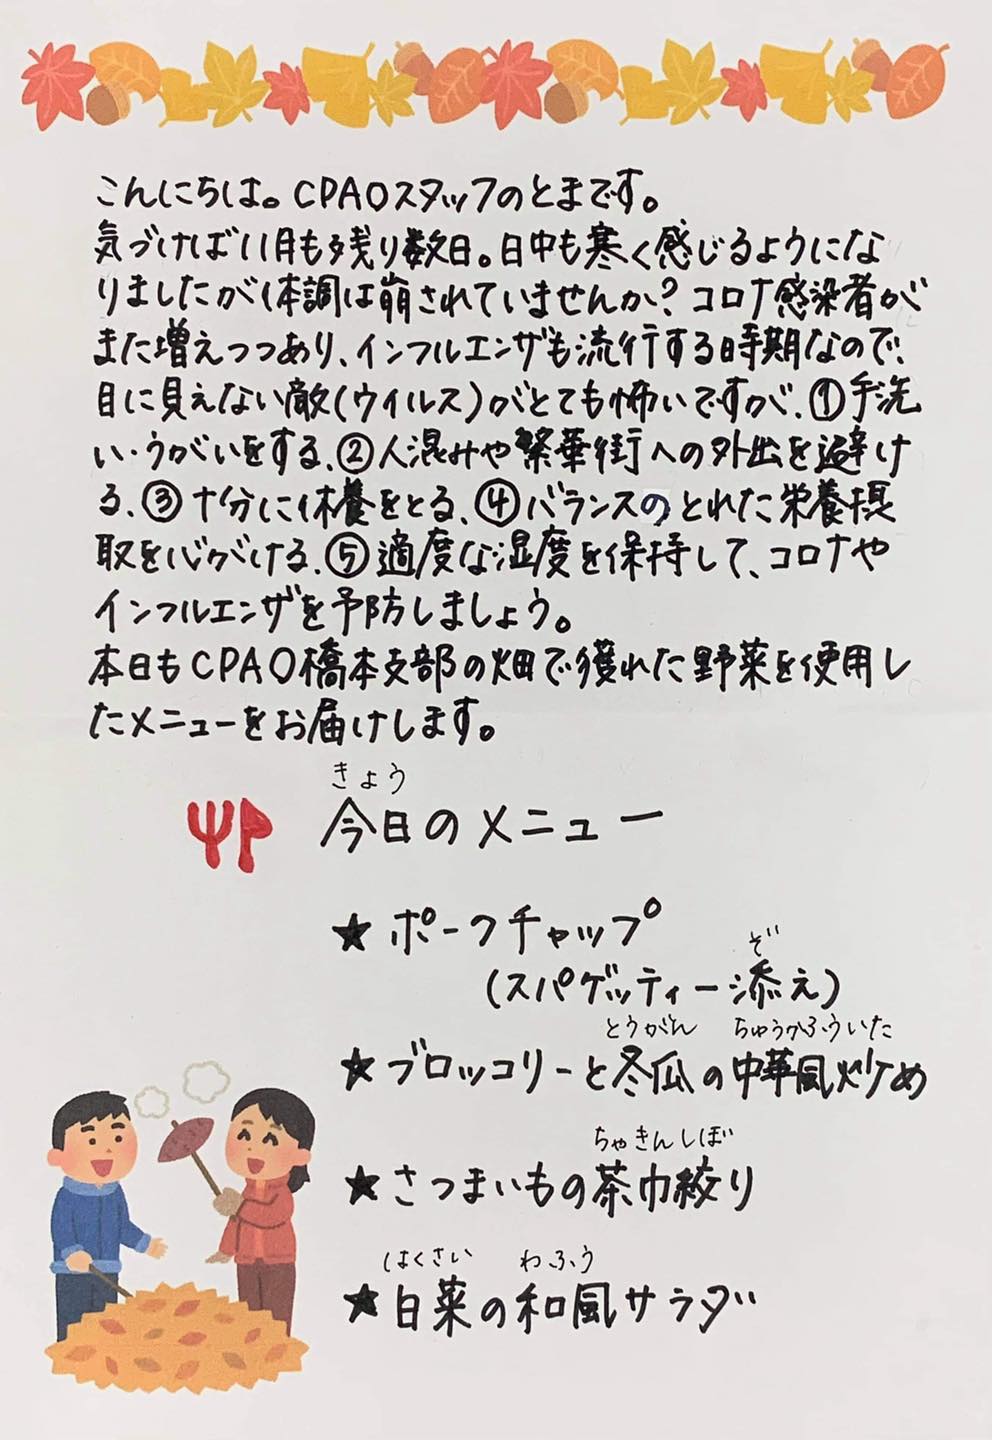 こんにちは。CPAOスタッフのとまです。
気づけば11月も残り数日。日中も寒く感じるようにな
りましたが体調は崩されていませんか？コロナ感染者が
また増えつつあり、インフルエンザも流行する時期なので、
目に見えない敵(ウイルス)がとても怖いですが、①手洗
い・うがいをする、②人混みや繁華街への外出を避け
る、③十分に休養をとる、④バランスのとれた栄養摂
取を心がける、⑤適度な湿度を保持して、コロナや
インフルエンザを予防しましょう。
本日もCPAO橋本支部の畑で獲れた野菜を使用し
たメニューをお届けします。
きょう
今日のメニュー
★ポークチャップ
ぞ
(スパゲッティー添え)
とうがん ちゅうかふういた
★ブロッコリーと冬瓜の中華風炒め
ちゃきんしぼ
★さつまいもの茶巾絞り
はくさい わふう
★白菜の和風サラダ